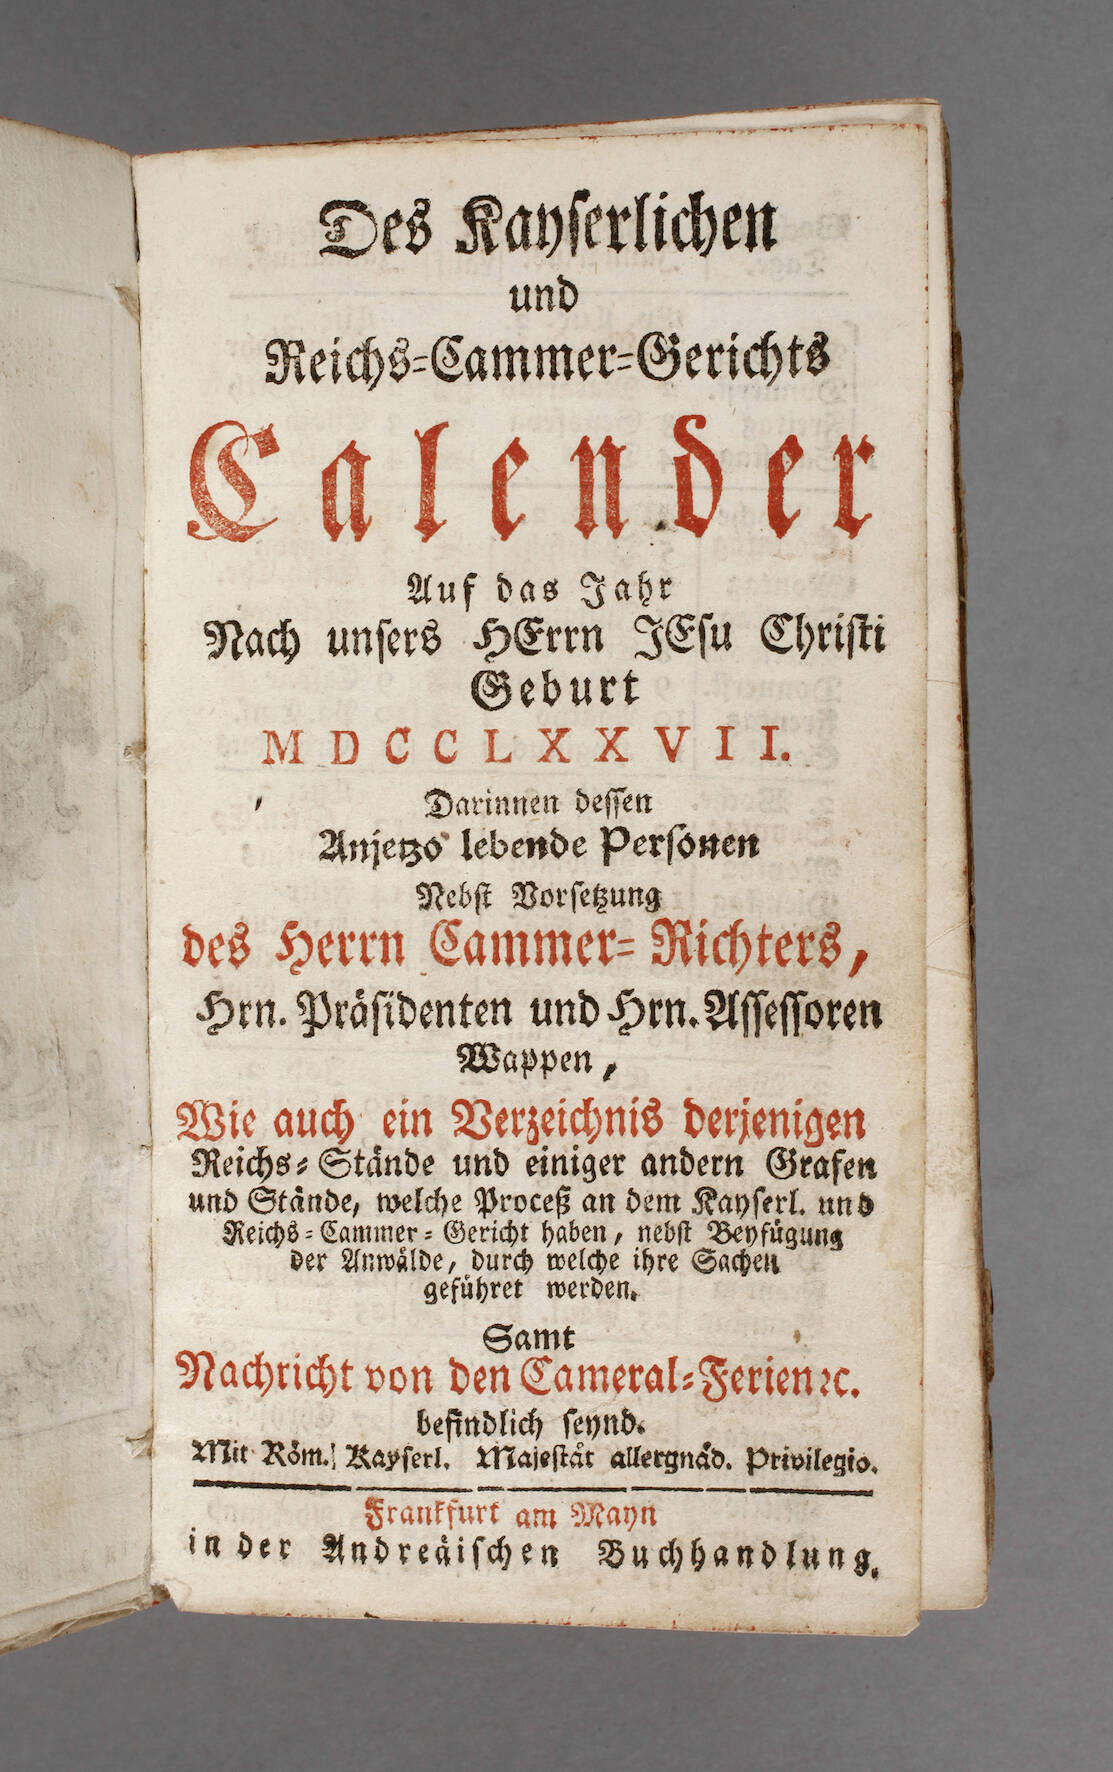 Des Kayserlichen
und
Reichs=Cammer=Gerichts
Calender
Auf das Jahr
Nach unsers HErrn JEsu Christi
Geburt
MDCCLXXVII.
Darinnen dessen
Anjetzo lebende Personen
Nebst Vorsetzung
des Herrn Cammer=Richters,
Hrn. Präsidenten und Hrn. Assessoren
Wappen,
Wie auch ein Verzeichnis derjenigen
Reichs=Stände und einiger andern Grafen
und Stände, welche Proceß an dem Kayserl. und
Reichs=Cammer=Gericht haben, nebst Beyfügung
der Anwälde, durch welche ihre Sachen
geführet werden.
Samt
Nachricht von den Cameral=Ferien ꝛc.
befindlich seynd.
Mit Röm. Kayserl. Majestät allergnäd. Privilegio.
Frankfurt am Mayn
in der Andreäischen Buchhandlung.